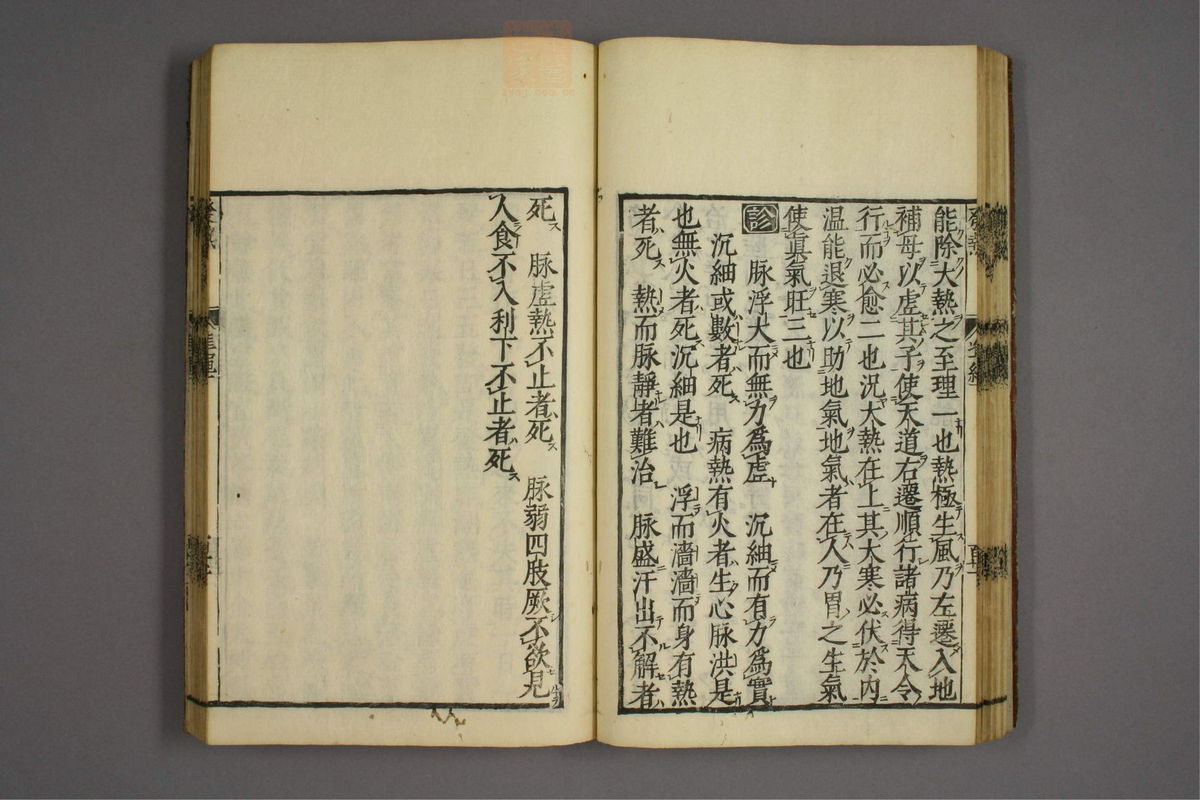 能除大熱之至理一也熱極生風乃左遷入地
補母以虛其子使天道右遷順行諸病得天令
行而必愈二也況大熱在上其大寒必伏於内
温能退寒以助地氣地氣者在人乃胃之生氣
使眞氣旺三也
診　脉浮大而無力爲虛　沉細而有力爲實
沉細或數者死　病熱有火者生心脉洪是
也無火者死沉細是也　浮而濇濇而身有熱
者死　熱而脉靜者難治　脉盛汗出不解者
死　脉虛熱不止者死　脉弱四肢厥不欲見
人食不入利下不止者死